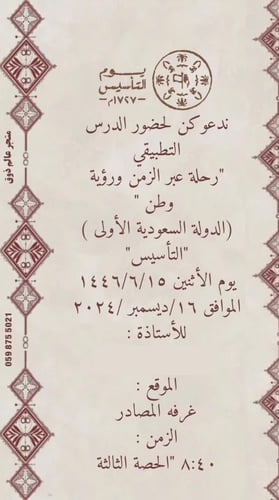 يوم
التأسيس
١٧٢٧م
ندعوكن لحضور الدرس
التطبيقي
"رحلة عبر الزمن ورؤية
وطن "
(الدولة السعودية الأولى )
"التأسيس"
يوم الأثنين ١٤٤٦/٦/١٥
الموافق ١٦/ديسمبر /٢٠٢٤
للأستاذة :
الموقع :
غرفه المصادر
الزمن :
٨:٤٠ "الحصة الثالثة
متجر عالم ذوق
059 875 5021